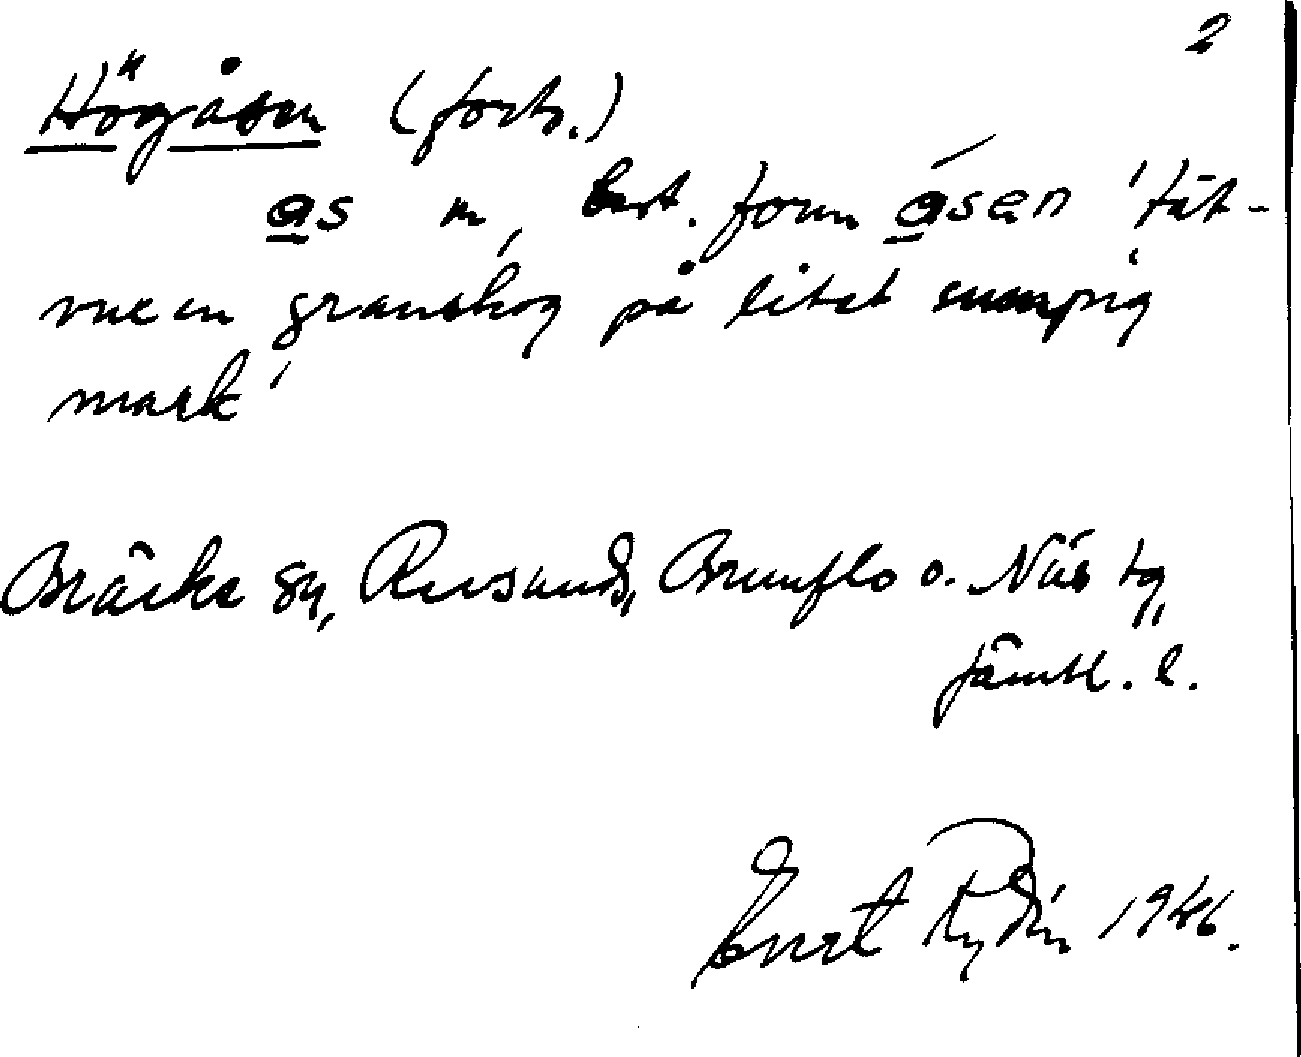 2
Högåsen (forts.)
as m, best. form ásen 'tät-
vuxen granskog på litet sumpig
mark'
Bräcke sn, Revsunds, Brunflo o. Näs tg,
Jämtl. l.
Evert Rydin 1946.